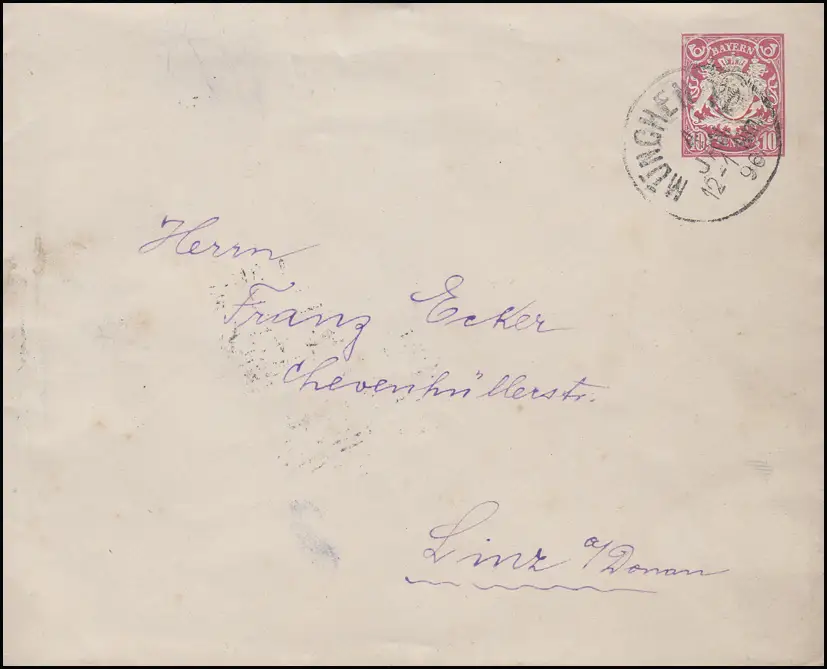 BAYERN
10 10
MÜNCHEN
JUN
12-1
96
Herrn
Franz Ecker
Chevenhüllerstr.
Linz a/Donau